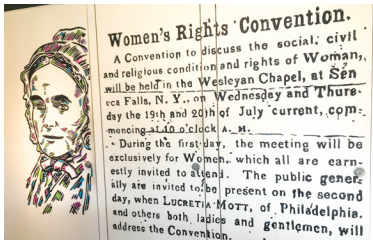 Women's Rights Convention.
A Convention to discuss the social, civil
and religious condition and rights of Woman,
will be held in the Wesleyan Chapel, at Sen
eca Falls, N. Y., on Wednesday and Thurs-
day the 19th and 20th of July current, com-
mencing at 10 o'clock A. M.
During the first day, the meeting will be
exclusively for Women, which all are earn-
estly invited to attend. The public gener-
ally are invited to be present on the second
day, when LUCRETIA MOTT, of Philadelphia,
and others both ladies and gentlemen, will
address the Convention.